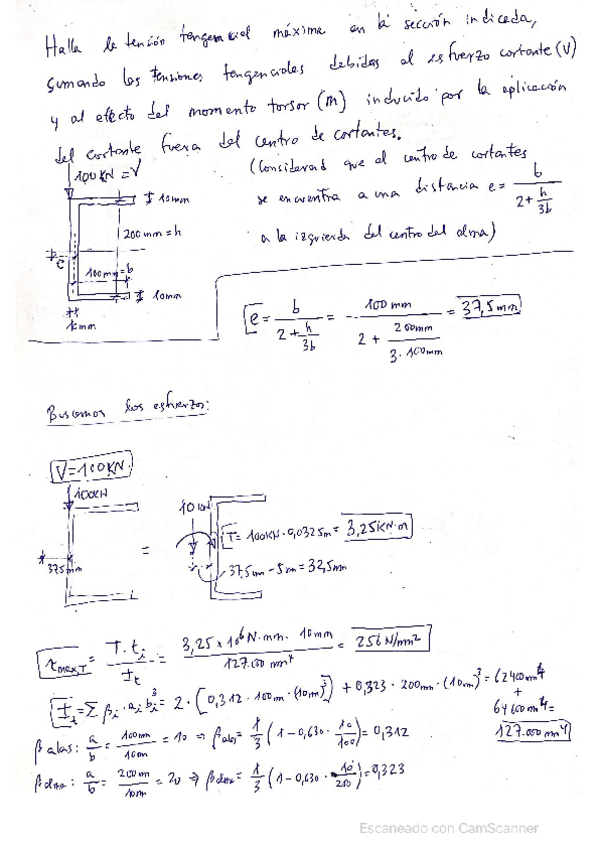 Halla la tensión tangencial máxima en la sección indicada,
sumando las tensiones tangenciales debidas al esfuerzo cortante (V)
y al efecto del momento torsor (m) inducido por la aplicación
del cortante fuera del centro de cortantes.
100KN = V
(Considerad que el centro de cortantes
se encuentra a una distancia e = b / (2 + h/3b)
a la izquierda del centro del alma)
10mm
200mm = h
e
100mm = b
10mm
10mm
e = b / (2 + h/3b) = 100mm / (2 + 200mm/3·100mm) = 37,5mm
Buscamos los esfuerzos:
V = 100KN
100KN
37,5mm
=
10KN
T = 100KN · 0,0325m = 3,25KN·m
37,5mm - 5mm = 32,5mm
τmax,T = T · ti / It = 3,25 x 10^6 N·mm · 10mm / 127.000 mm^4 = 256 N/mm²
It = Σ βi · ai bi^3 = 2 · [0,312 · 100mm · (10mm)^3] + 0,323 · 200mm · (10mm)^3 = 62400mm^4
+
64600mm^4 =
127.000mm^4
β alas: a/b = 100mm/10mm = 10 ⇒ βalas = 1/3 (1 - 0,630 · 10/100) = 0,312
β alma: a/b = 200mm/10mm = 20 ⇒ βalma = 1/3 (1 - 0,630 · 10/200) = 0,323
Escaneado con CamScanner